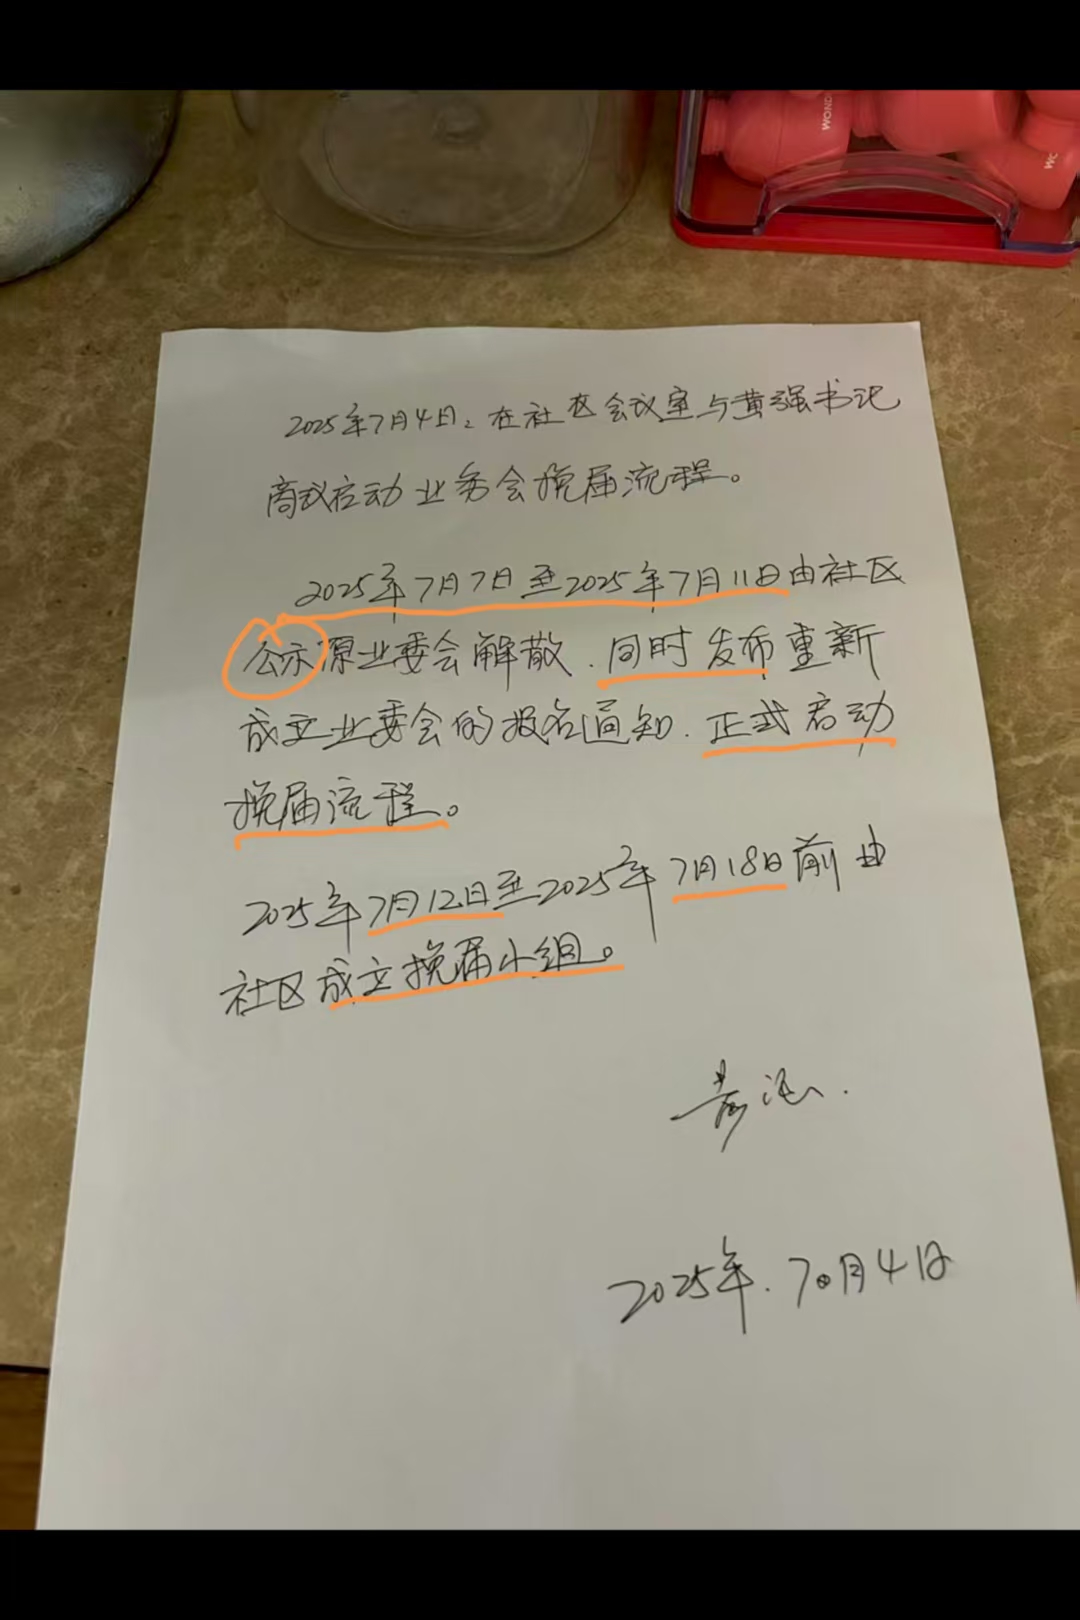 WOND
WO
2025年7月4日，在社区会议室与黄强书记
商议启动业委会换届流程。
2025年7月7日至2025年7月11日由社区
公示原业委会解散，同时发布重新
成立业委会的报名通知，正式启动
换届流程。
2025年7月12日至2025年7月18日前由
社区成立换届小组。
黄强
2025年.7月4日